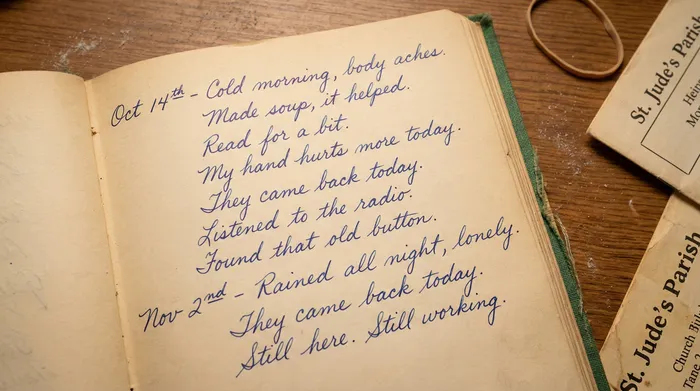 Oct 14th – Cold morning, body aches.
Made soup, it helped.
Read for a bit.
My hand hurts more today.
They came back today.
Listened to the radio.
Found that old button.
Nov 2nd – Rained all night, lonely.
They came back today.
Still here. Still working.
St. Jude's Parish
St. Jude's Parish